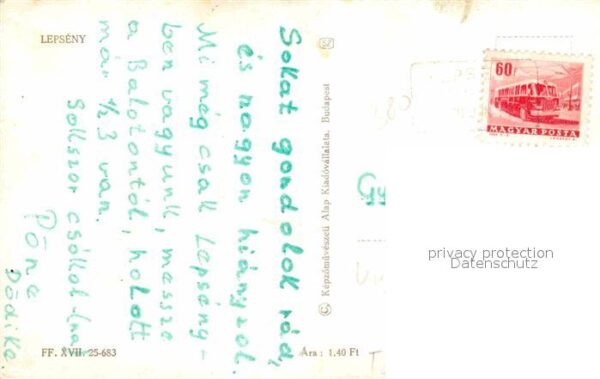 LEPSÉNY
Sokat gondolok rád,
és nagyon hiányzol.
Mi még csak Lepsény-
ben vagyunk, messze
a Balatontól, holott
már 1/2 3 van.
Sokszor csókol
Döne
Dödike
FF. XVII. 25-683
Ára: 1,40 Ft
© Képzőművészeti Alap Kiadóvállalata, Budapest
60f
MAGYAR POSTA
privacy protection
Datenschutz